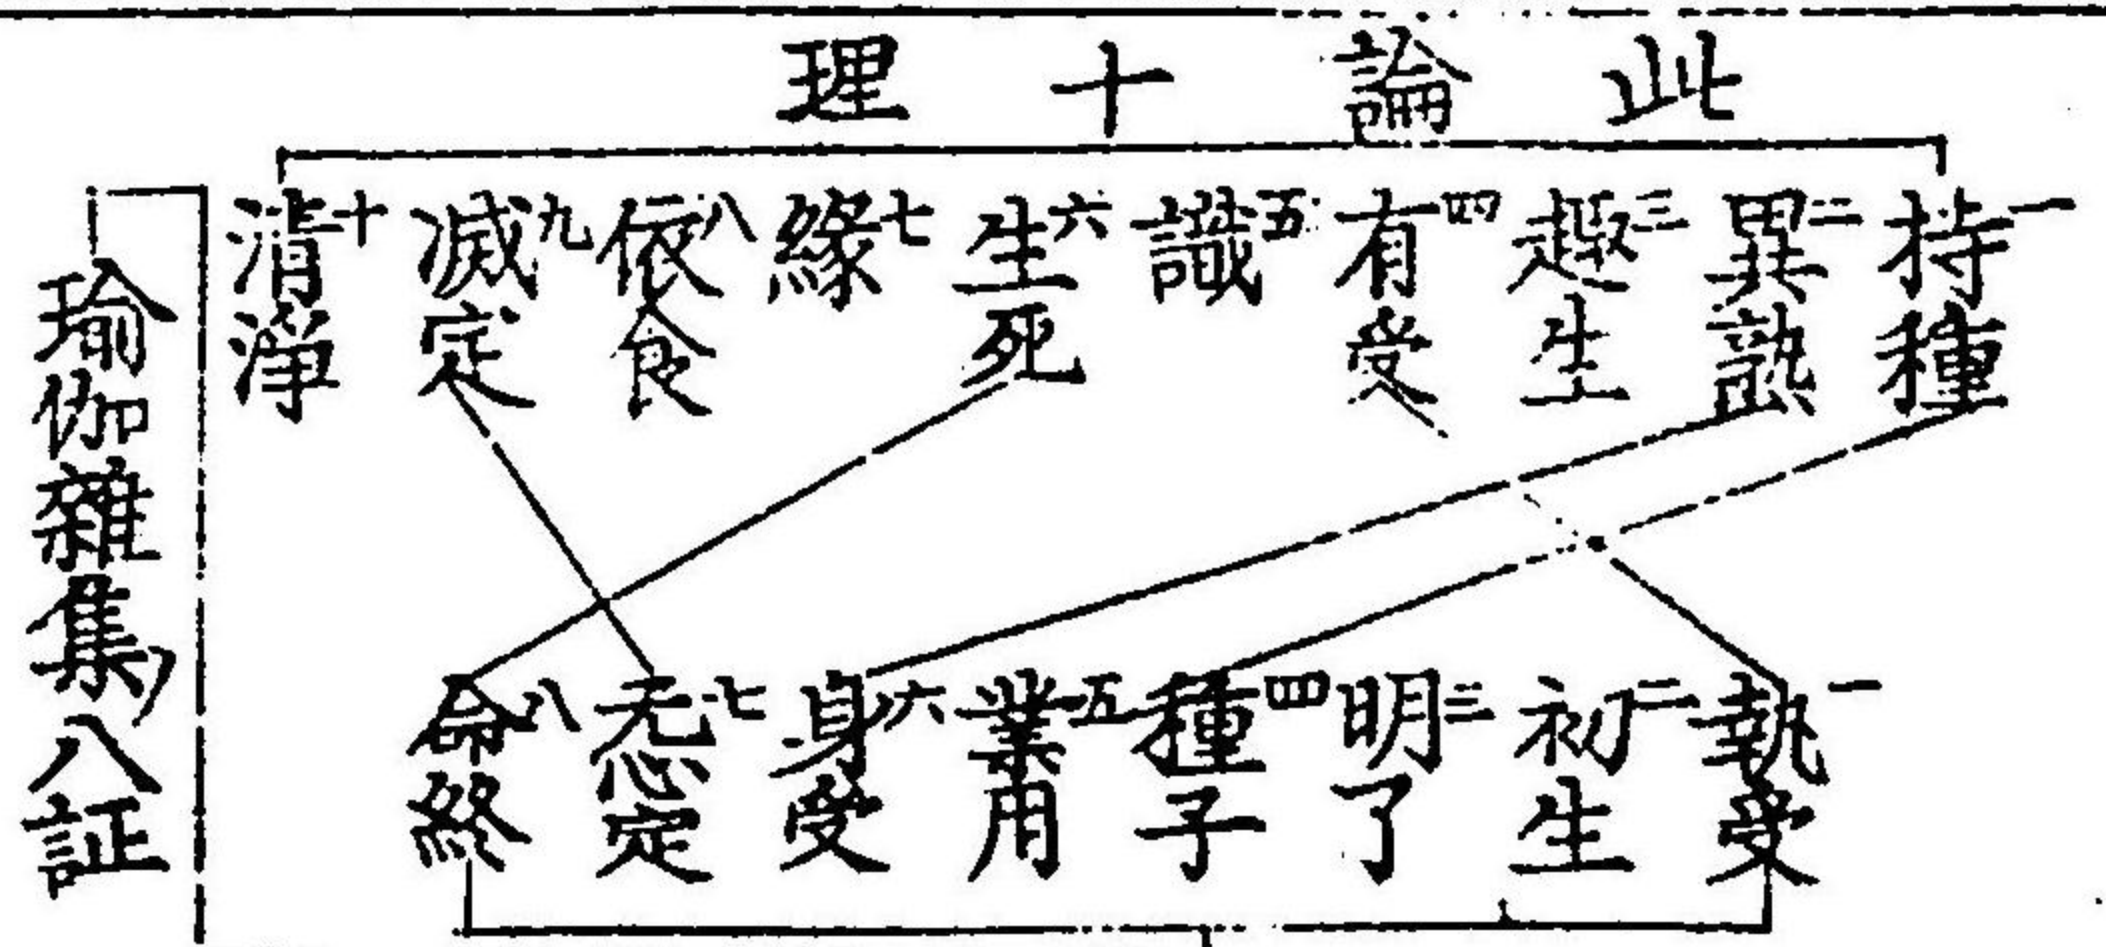 此論十理
一持種
二異熟
三趣生
四有受
五識
六生死
七緣
八依食
九滅定
十清淨
一執受
二初生
三明了
四種子
五業用
六身受
七无心定
八命終
瑜伽雜集八証